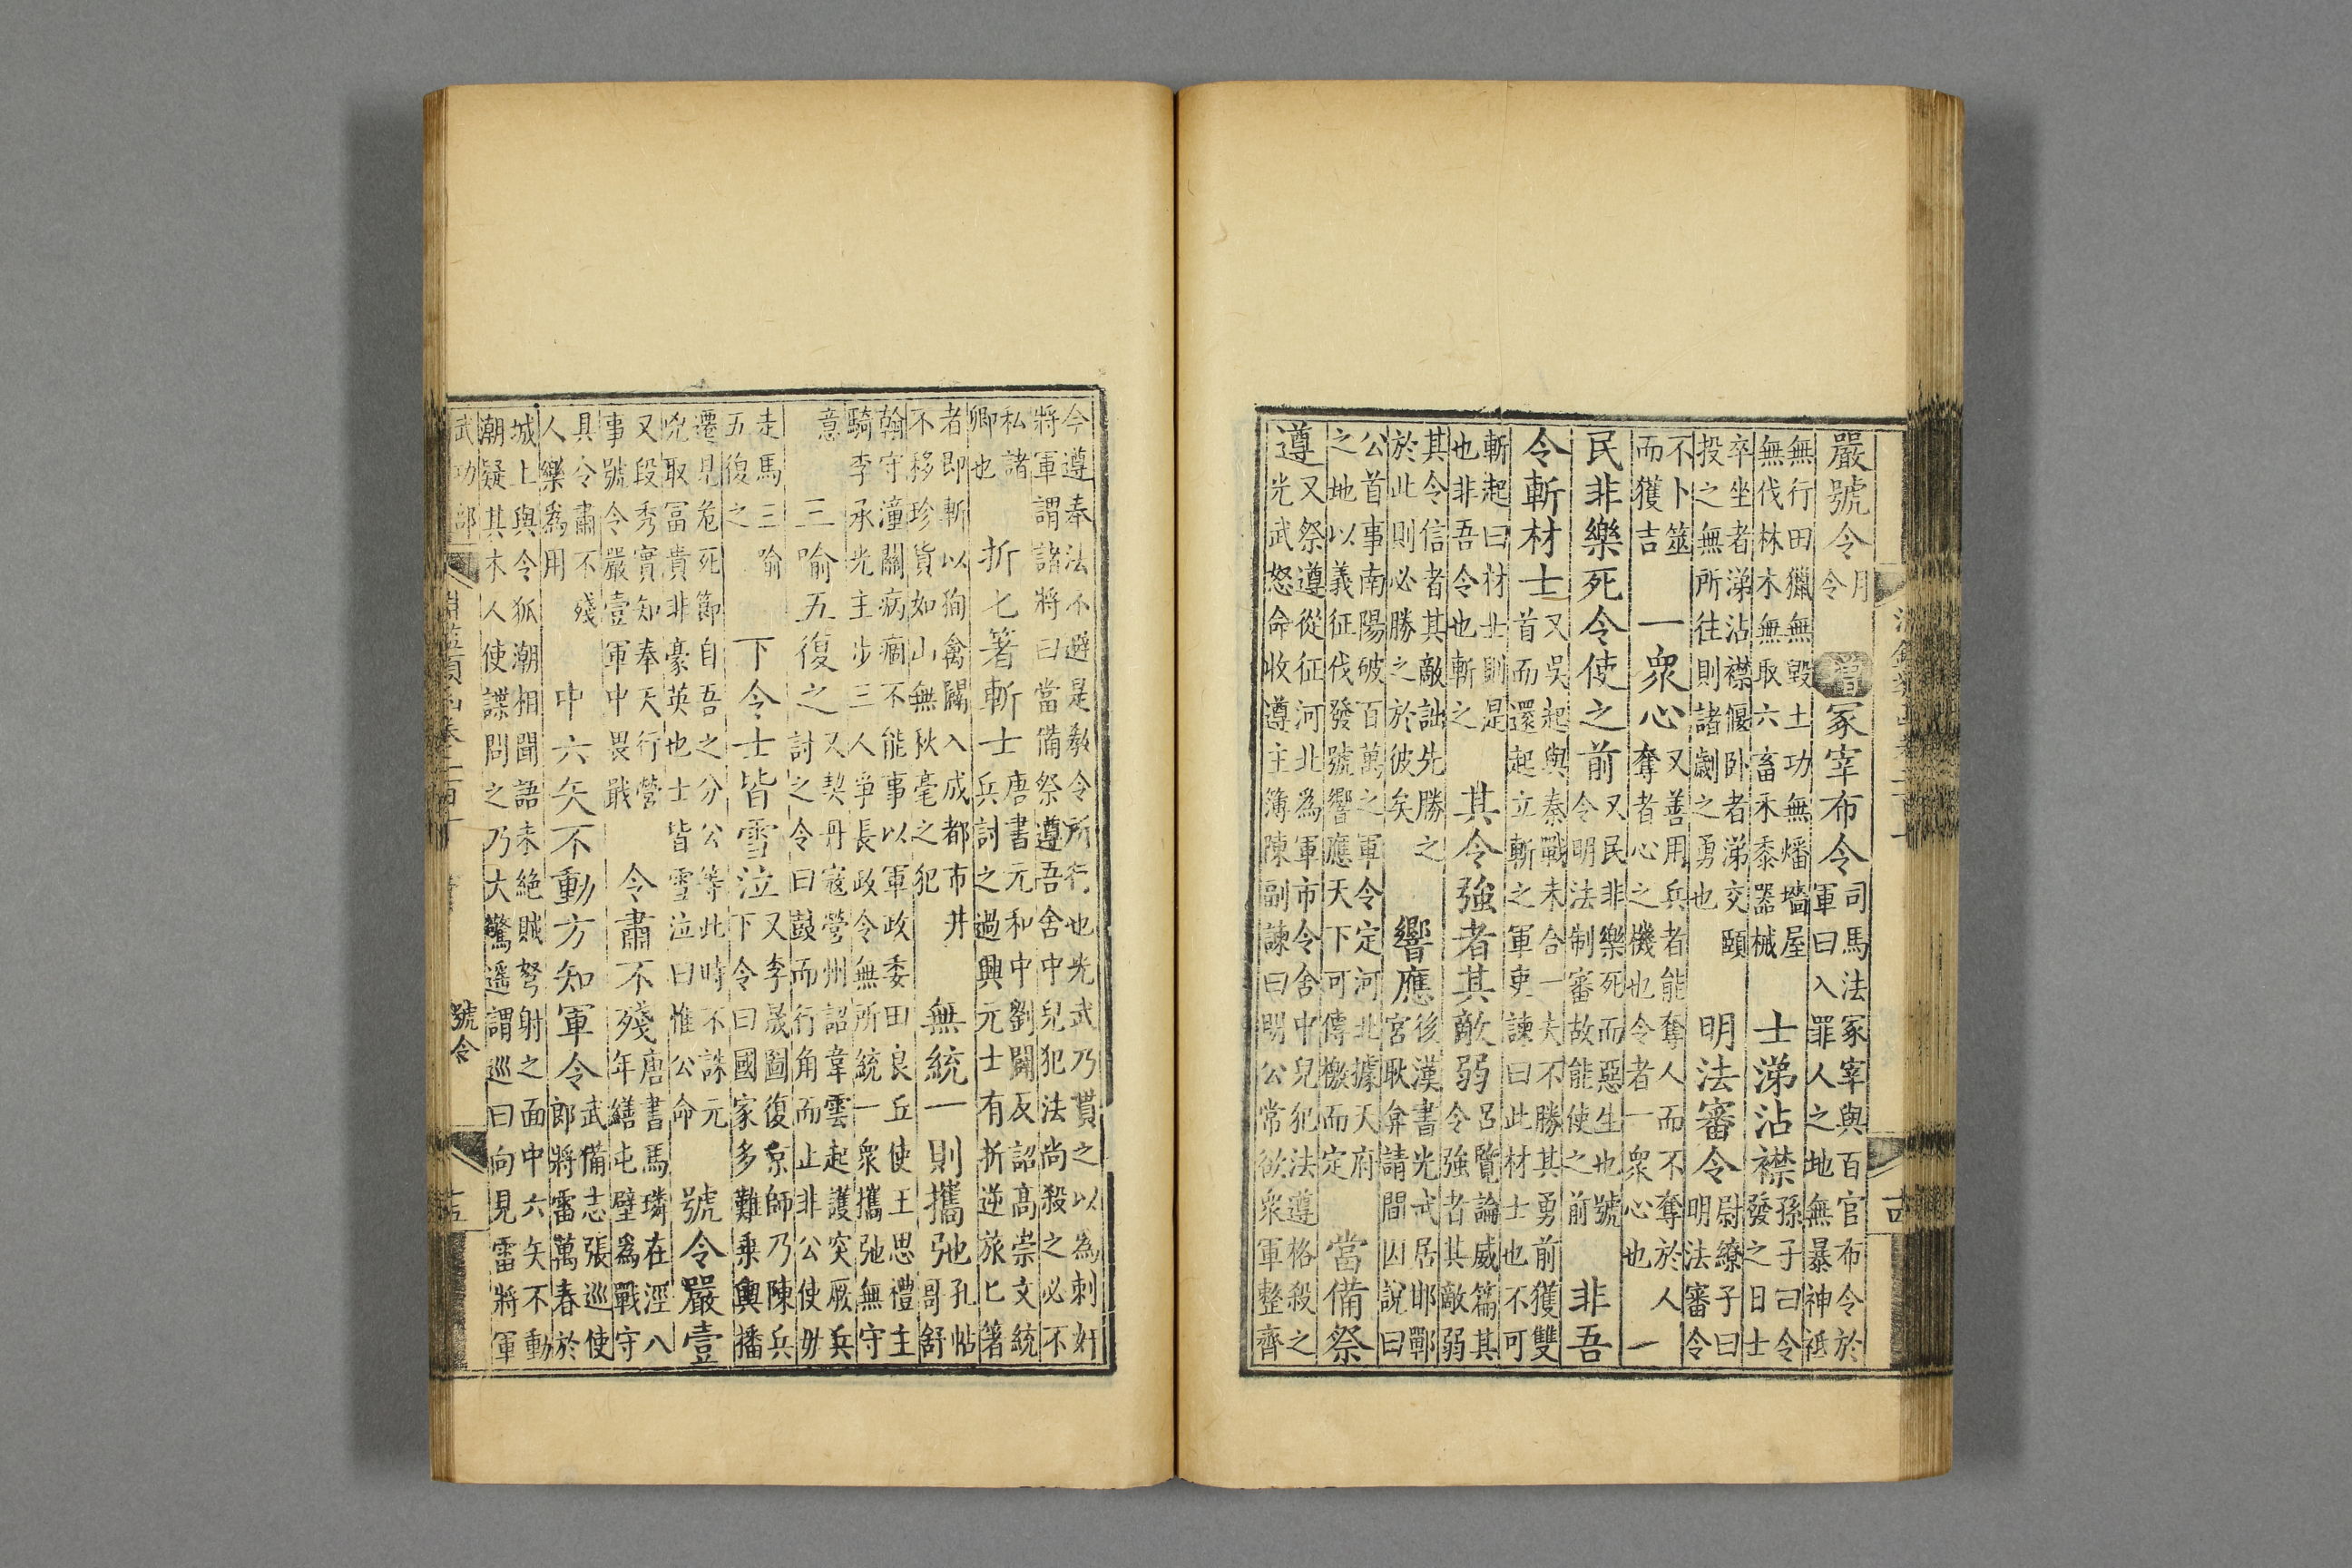 淵鑑類函卷二百十
嚴號令 月
令
增冢宰布令 司馬法冢宰與百官布令於
軍曰入罪人之地無暴神祇
無行田獵無毀土功無燔墻屋
無伐林木無取六畜禾黍器械
士涕沾襟 孫子曰令
發之日士
卒坐者涕沾襟偃卧者涕交頤
投之無所往則諸劌之勇也
明法審令 尉繚子曰
明法審令
不卜筮
而獲吉
一衆心 又善用兵者能奪人而不奪於人
奪者心之機也令者一衆心也
一
民非樂死令使之前 又民非樂死而惡生也號
令明法制審故能使之前
非吾
令斬材士 又吳起與秦戰未合一夫不勝其勇前獲雙
首而還起立斬之軍吏諫曰此材士也不可
斬起曰材士則是
也非吾令也斬之
其令強者其敵弱 呂覽論威篇其
令強者其敵弱
其令信者其敵詘先勝之
於此則必勝之於彼矣
響應 後漢書光武居邯鄲
宮耿弇請間因說曰
公首事南陽破百萬之軍今定河北據天府
之地以義征伐發號響應天下可傳檄而定
當備祭
遵 又祭遵從征河北為軍市令舍中兒犯法遵格殺之
光武怒命收遵主簿陳副諫曰明公常欲衆軍整齊
今遵奉法不避是教令所行也光武乃貰之以為刺奸
將軍謂諸將曰當備祭遵吾舍中兒犯法尚殺之必不
私諸
卿也
折匕箸斬士 唐書元和中劉闢反詔高崇文統
兵討之過興元士有折逆旅匕箸
者即斬以狥禽闢入成都市井
不移珍貨如山無秋毫之犯
無統一則攜弛 孔帖
哥舒
翰守潼關病痼不能事以軍政委田良丘使王思禮主
騎李承光主步三人爭長政令無所統一衆攜弛無守
意
三喻五復之 又契丹寇營州詔韋雲起護突厥兵
討之令曰鼓而行角而止非公使毋
走馬三喻
五復之
下令士皆雪泣 又李晟圖復京師乃陳兵
下令曰國家多難乗輿播
遷見危死節自吾之分公等此時不誅元
兇取冨貴非豪英也士皆雪泣曰惟公命
號令嚴壹
又段秀實知奉天行營
事號令嚴壹軍中畏戢
令肅不殘 唐書馬璘在涇八
年繕屯壁為戰守
具令肅不殘
人樂為用
中六矢不動方知軍令 武備志張巡使
郎將雷萬春於
城上與令狐潮相聞語未絕賊弩射之面中六矢不動
潮疑其木人使諜問之乃大驚遥謂巡曰向見雷將軍
武功部
淵鑑類函卷二百十
號令
十五